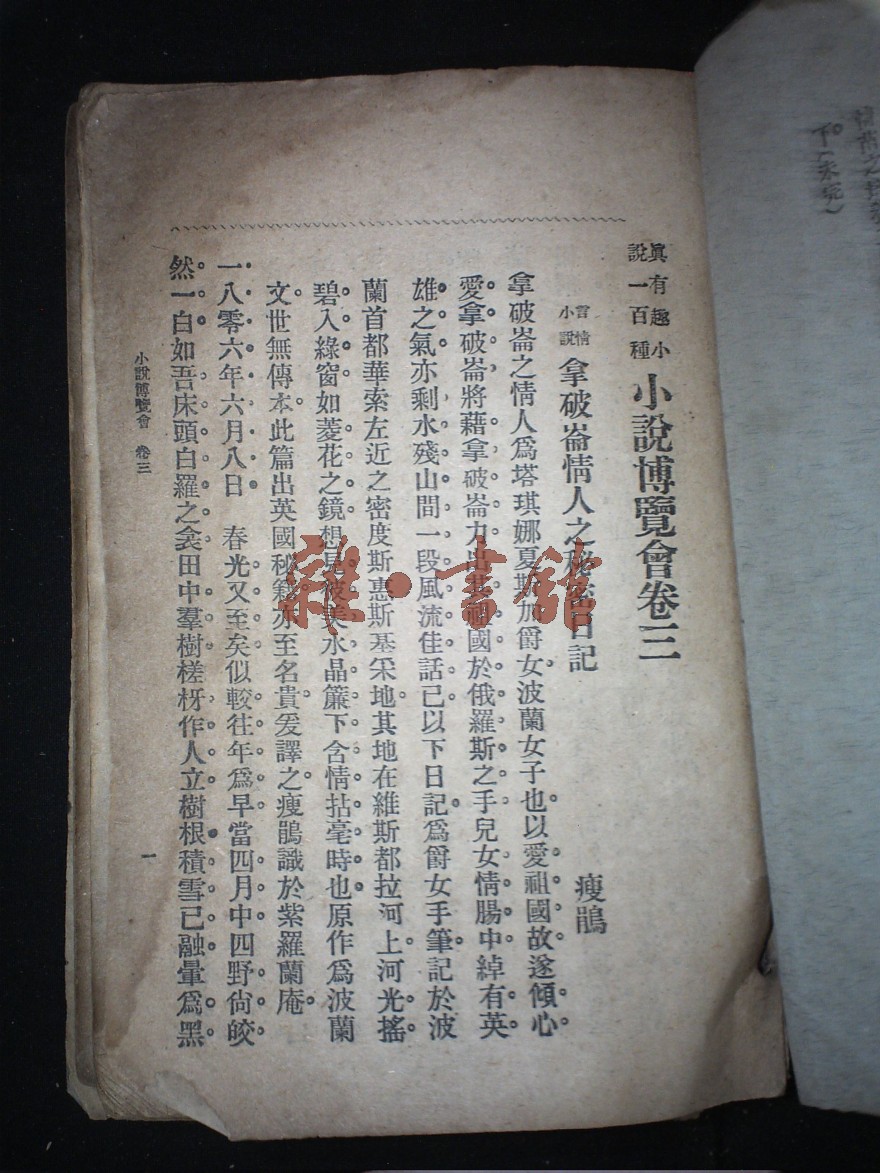 眞有趣小
說一百種
小說博覽會卷三
言情
小說
拿破崙情人之秘密日記
瘦鵑
拿破崙之情人爲塔琪娜夏斯加爵女波蘭女子也以愛祖國故遂傾心
愛拿破崙將藉拿破崙力出其祖國於俄羅斯之手兒女情腸中綽有英
雄之氣亦剩水殘山間一段風流佳話已以下日記爲爵女手筆記於波
蘭首都華索左近之密度斯惠斯基采地其地在維斯都拉河上河光搖
碧入綠窗如菱花之鏡想見彼美水晶簾下含情拈毫時也原作爲波蘭
文世無傳本此篇出英國秘籍亦至名貴爰譯之瘦鵑識於紫羅蘭庵
一八零六年六月八日 春光又至矣似較往年爲早當四月中四野尙皎
然一白如吾床頭白羅之衾田中羣樹槎枒作人立樹根積雪已融暈爲黑
小說博覽會 卷三
一
雜·書館